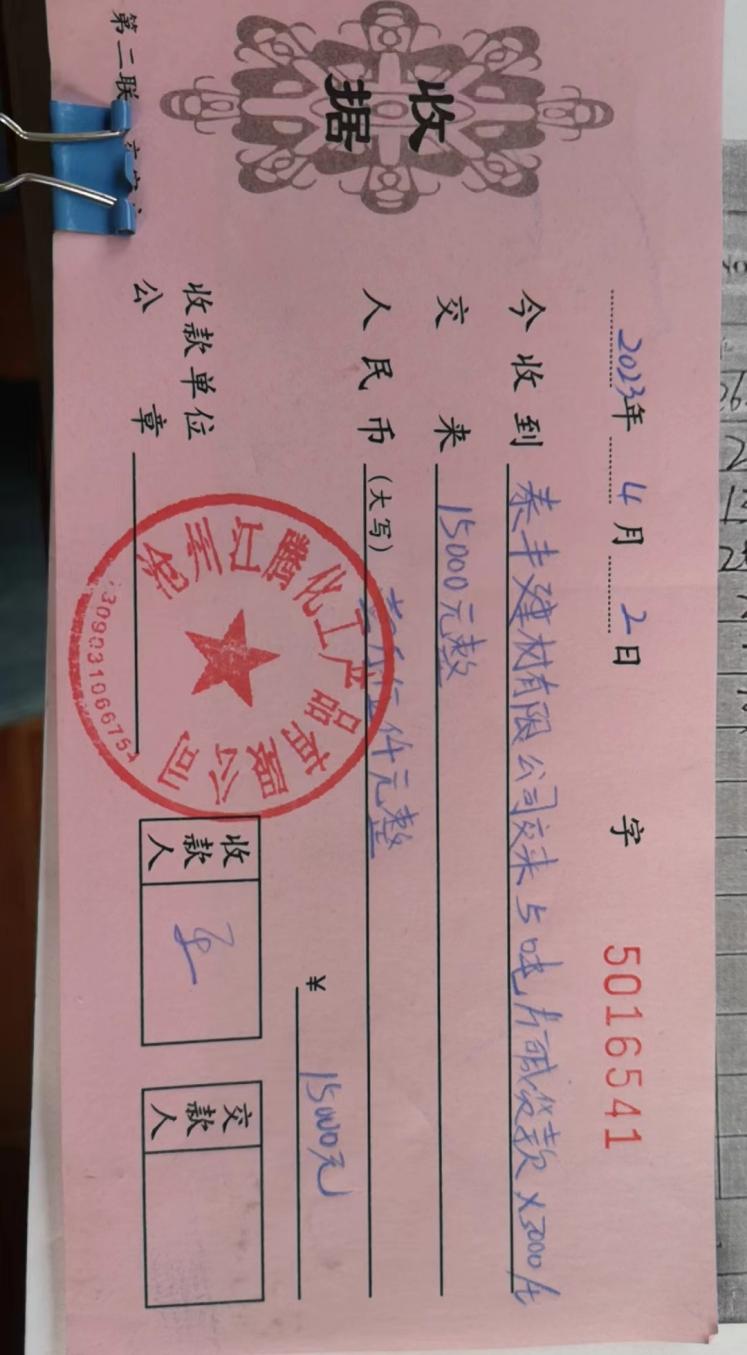 收据
2023年4月2日 字 5016541
今收到 泰丰建材有限公司交来5吨片碱货款 x3000/t
交来 15000元整
人民币(大写) 壹万伍仟元整
¥ 15000元
收款单位
公章
沧州江腾化工产品有限公司
收款人
交款人
第二联